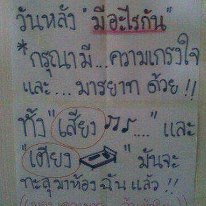 วันหลัง "มีอะไรกัน"
*กรุณามี...ความเกรงใจ
และ...มารยาท ด้วย !!
ทั้ง "เสียง ♫♪...." และ
"เตียง" มันจะ
ทะลุมาห้อง ฉัน แล้ว !!